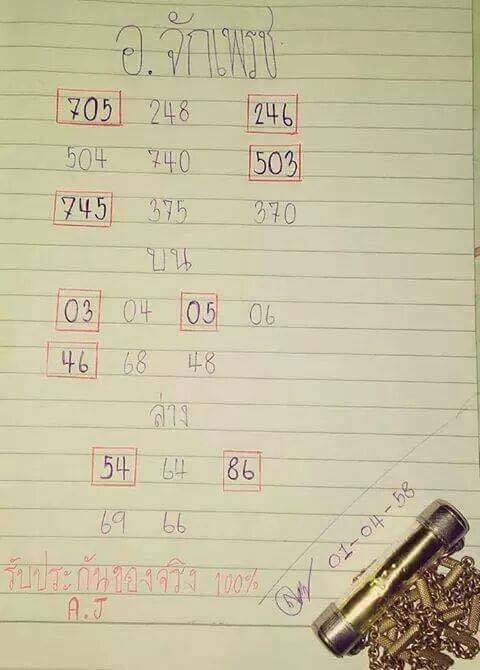 อ.จักเพรช
705 248 246
504 740 503
745 375 370
บน
03 04 05 06
46 68 48
ล่าง
54 64 86
69 66
01-04-58
รับประกันของจริง 100%
A.J